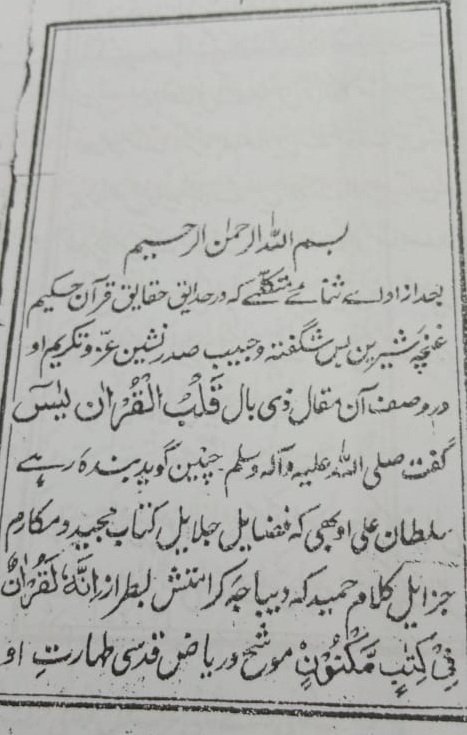 بسم اللہ الرحمٰن الرحیم
بعد از اولے ثنائے متکلمے کہ در حدایق حقایق قرآن حکیم
غنچہ شیرین یٰس شگفتہ و حبیب صدر نشین عزّ و تکریم او
در وصف آن مقال ذی بال قَلْبُ الْقُرْاٰن یٰسٓ
گفت صلی اللہ علیہ وآلہ وسلم چنین گوید بندہ رہے
سلطان علی اوبھی کہ فضایل جلایل کتاب مجید و مکارم
جزایل کلام حمید کہ دیباچہ کرامتش بطراز اِنَّهٗ لَقُرْاٰنٌ
فِیْ کِتٰبٍ مَّکْنُوْنٍ موشح و ریاض قدسی طہارتِ او